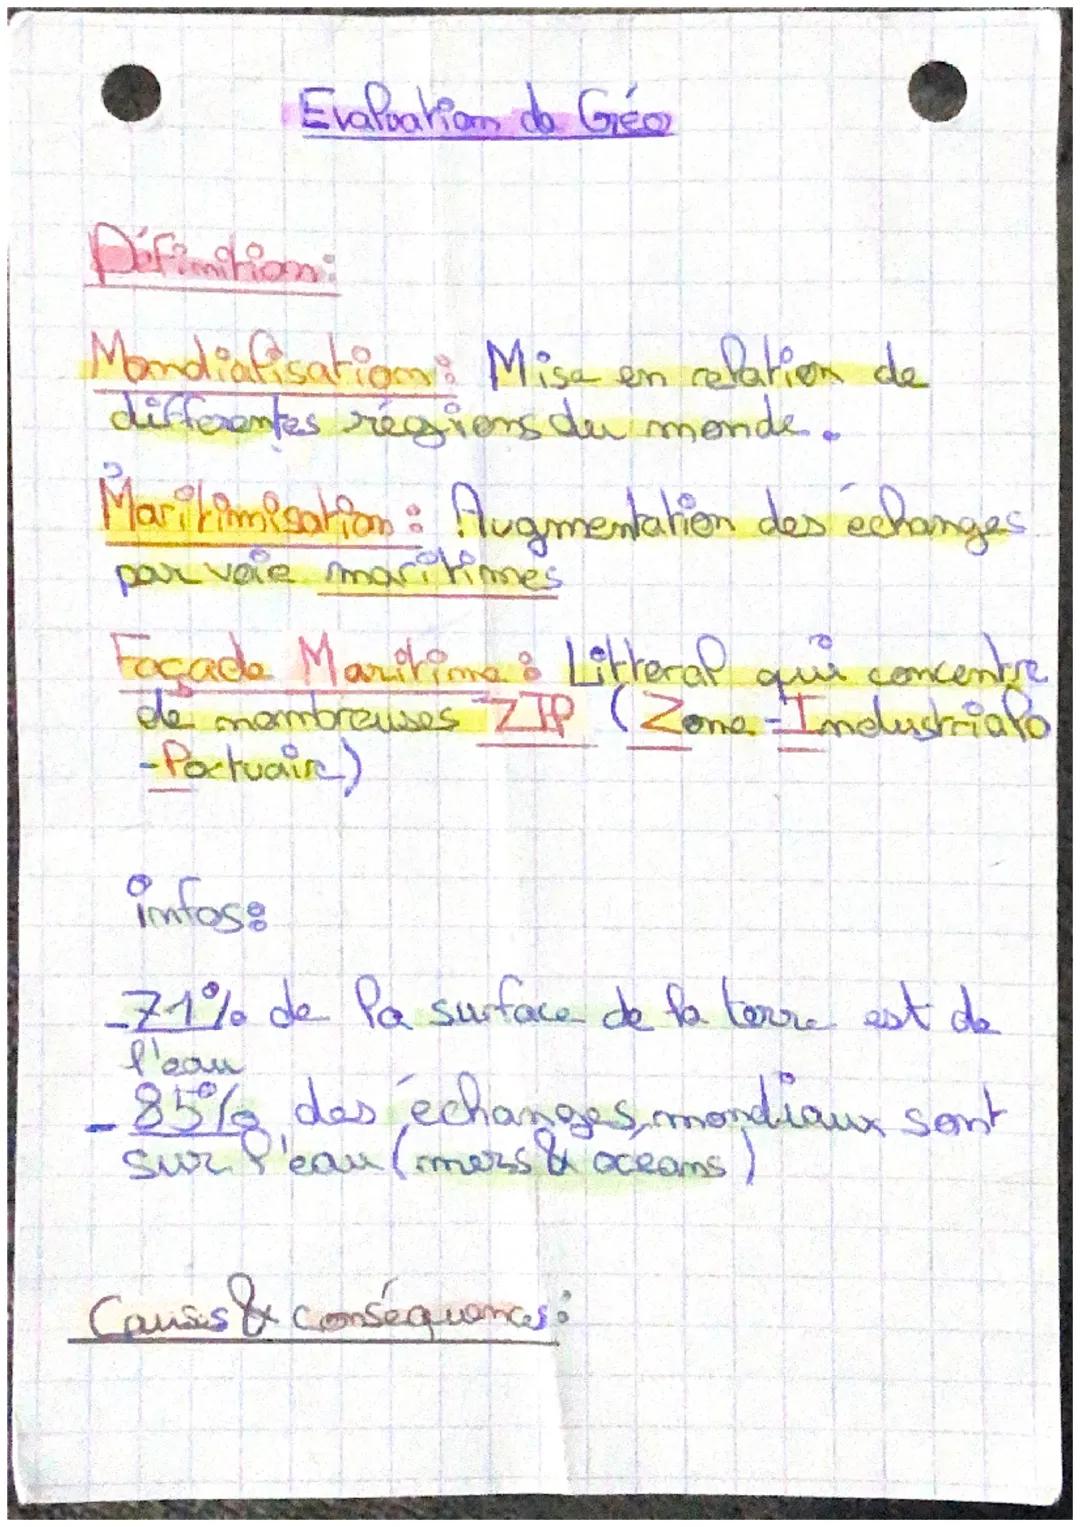 Evaluation de Géo
Définition:
Mondialisation: Mise en relation de
différentes régions du monde.
Maritimisation: Augmentation des échanges
par voie maritimes
Façade Maritime: Litteral qui concentre
de nombreuses ZIP (Zone-Industrialo
-Portuair)
infos:
-71% de la surface de la terre est de
l'eau
- 85% des échanges mondiaux sont
sur l'eau (mers & oceans)
Causes & conséquances: